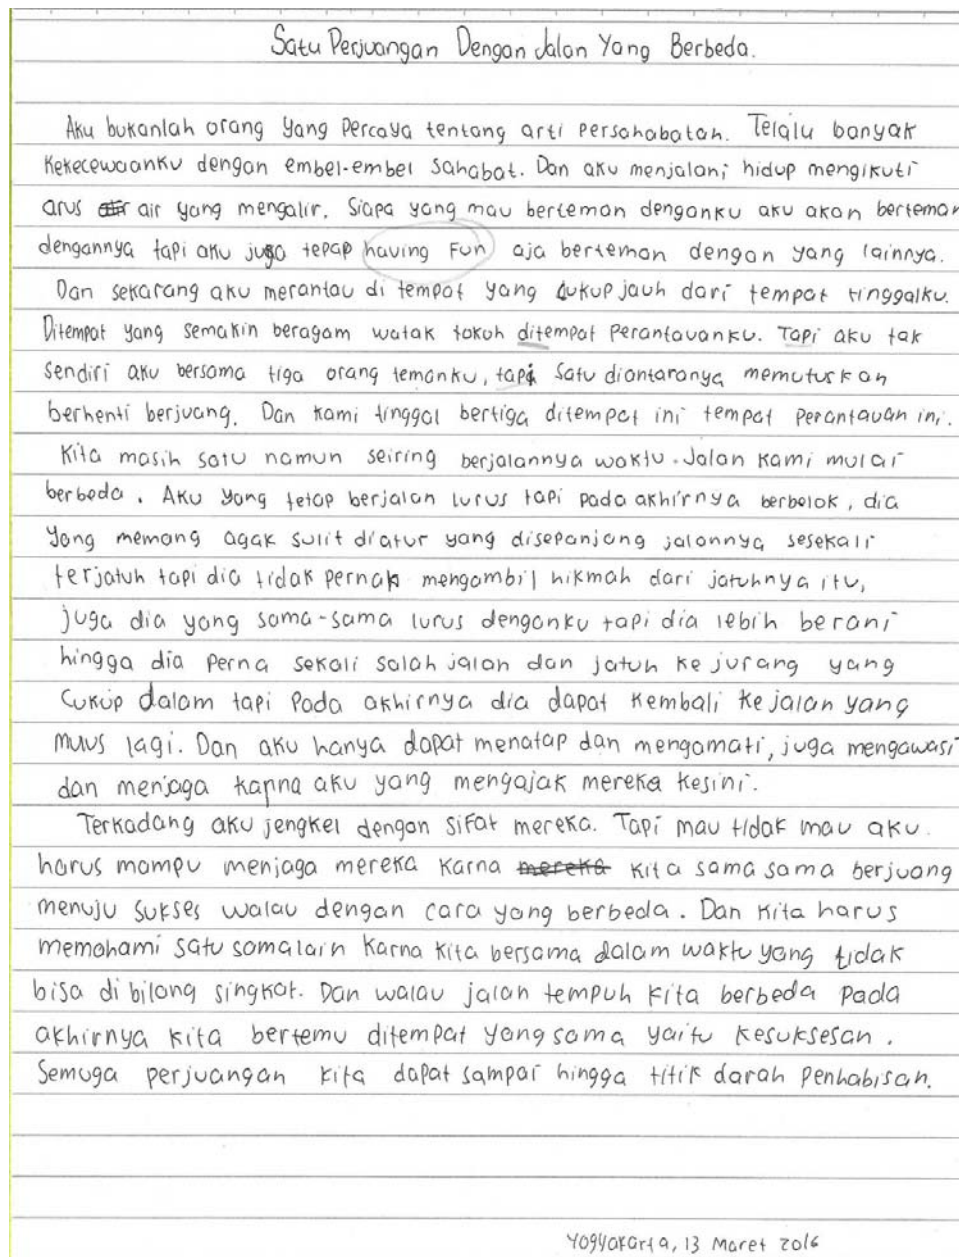 Satu Perjuangan Dengan Jalan Yang Berbeda.
Aku bukanlah orang yang percaya tentang arti persahabatan. Telalu banyak
kekecewaanku dengan embel-embel sahabat. Dan aku menjalani hidup mengikuti
arus air yang mengalir. Siapa yang mau berteman denganku aku akan berteman
dengannya tapi aku juga tepap having Fun aja berteman dengan yang lainnya.
Dan sekarang aku merantau di tempat yang cukup jauh dari tempat tinggalku.
Ditempat yang semakin beragam watak tokoh ditempat perantauanku. Tapi aku tak
sendiri aku bersama tiga orang temanku, tapi satu diantaranya memutuskan
berhenti berjuang. Dan kami tinggal bertiga ditempat ini tempat perantauan ini.
Kita masih satu namun seiring berjalannya waktu. Jalan kami mulai
berbeda. Aku yang tetap berjalan lurus tapi pada akhirnya berbelok, dia
yang memang agak sulit diatur yang disepanjang jalannya sesekali
terjatuh tapi dia tidak pernah mengambil hikmah dari jatuhnya itu,
juga dia yang sama-sama lurus denganku tapi dia lebih berani
hingga dia perna sekali salah jalan dan jatuh ke jurang yang
cukup dalam tapi pada akhirnya dia dapat kembali ke jalan yang
mulus lagi. Dan aku hanya dapat menatap dan mengamati, juga mengawasi
dan menjaga karna aku yang mengajak mereka kesini.
Terkadang aku jengkel dengan sifat mereka. Tapi mau tidak mau aku
harus mampu menjaga mereka karna mereka kita sama sama berjuang
menuju sukses walau dengan cara yang berbeda. Dan kita harus
memahami satu samalain karna kita bersama dalam waktu yang tidak
bisa di bilang singkat. Dan walau jalan tempuh kita berbeda pada
akhirnya kita bertemu ditempat yang sama yaitu kesuksesan.
Semuga perjuangan kita dapat sampai hingga titik darah penhabisan.
Yogyakarta, 13 Maret 2016